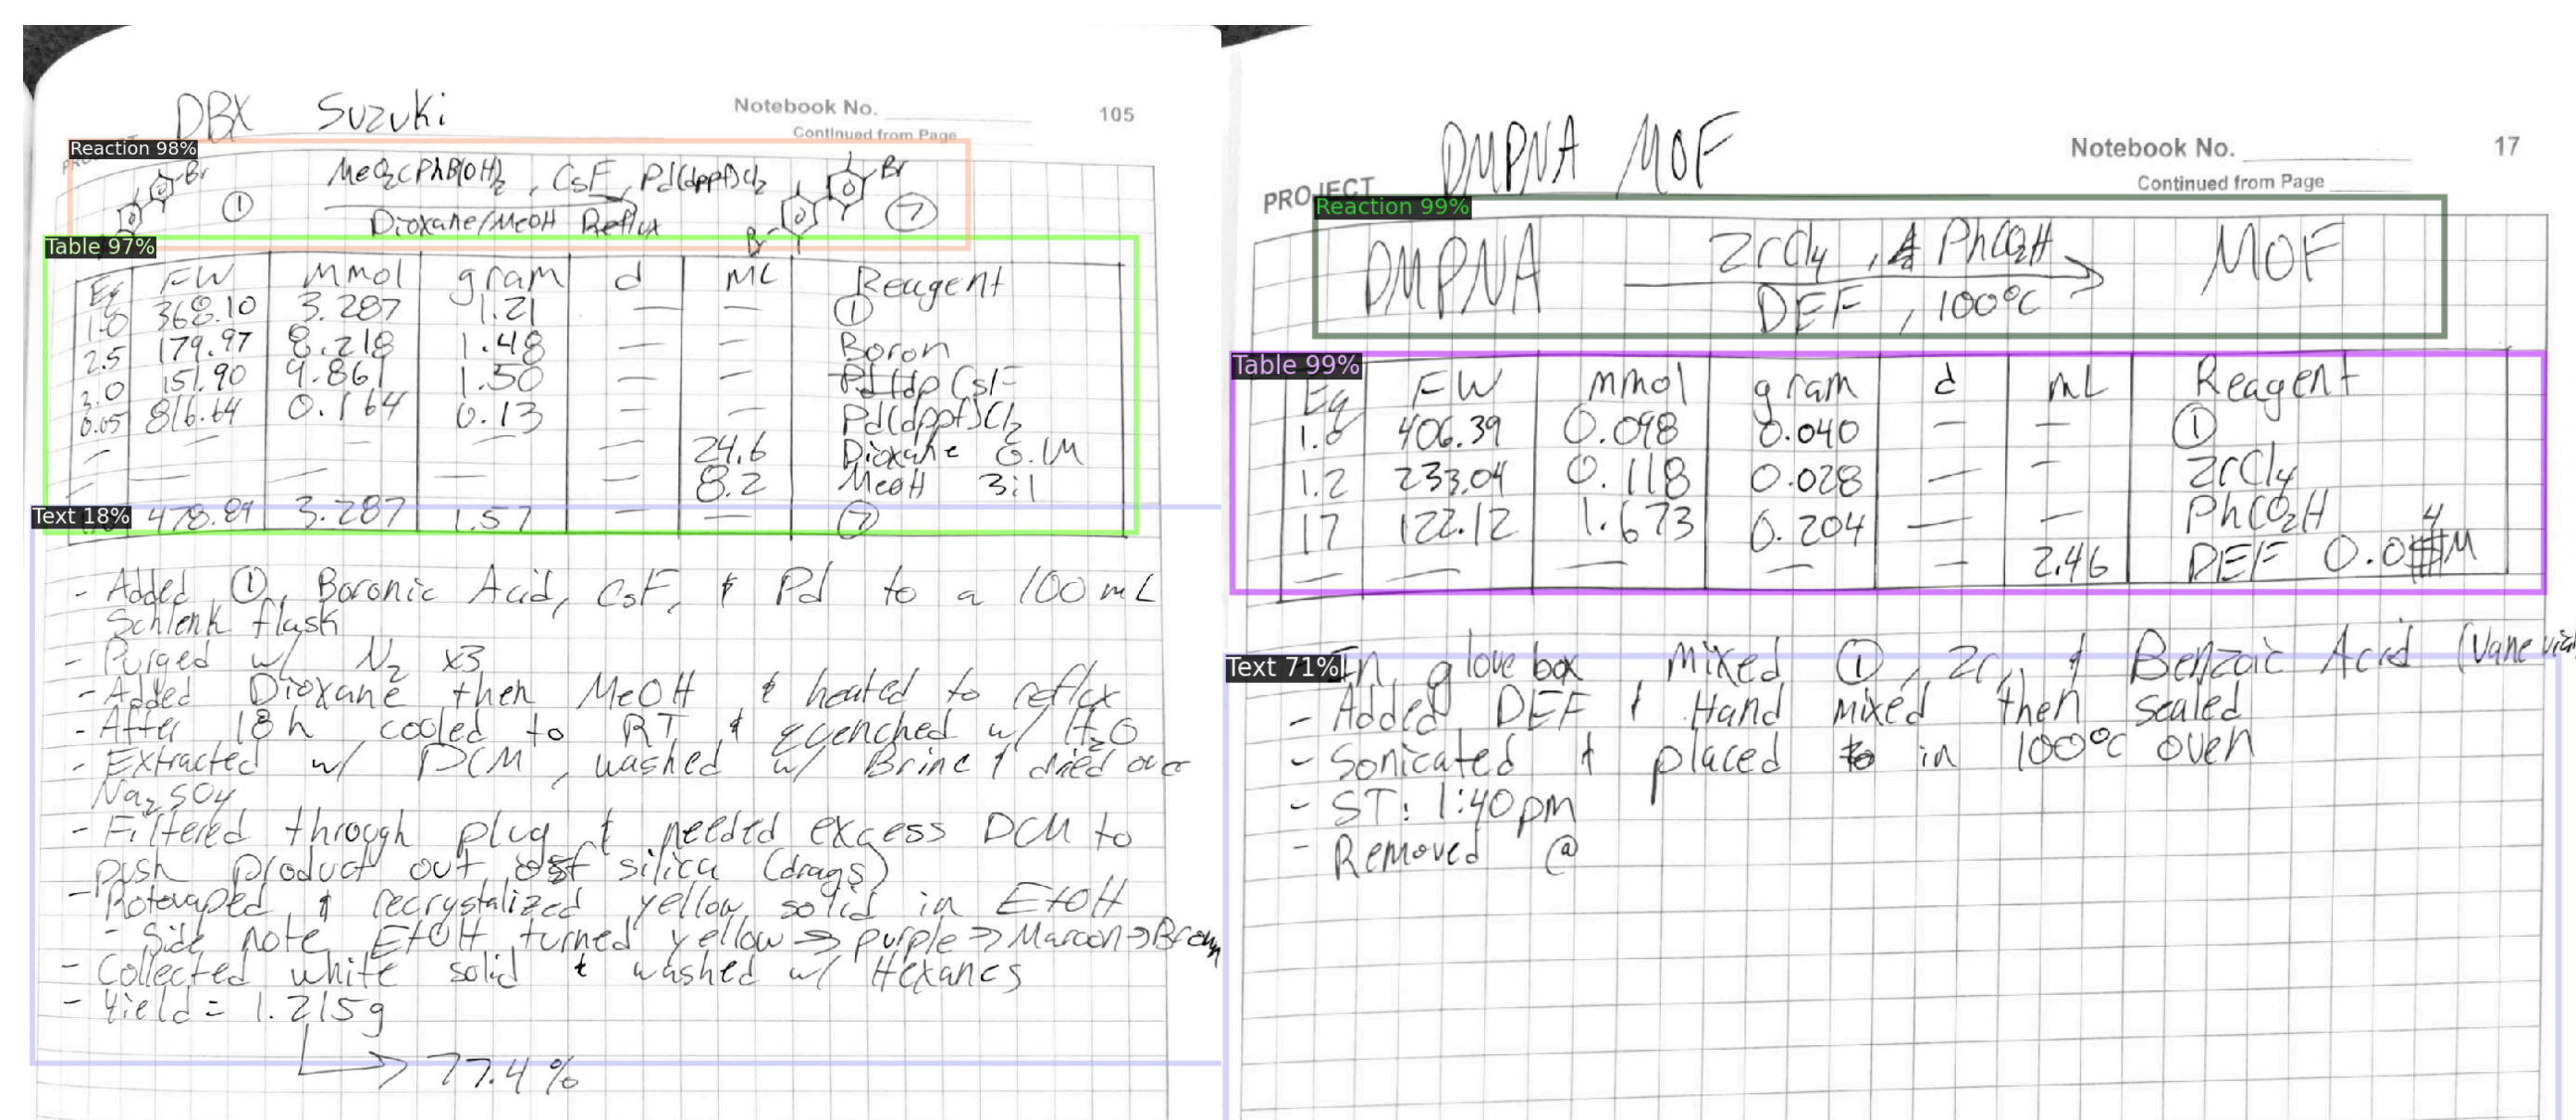 DBX Suzuki
Notebook No.
105
Continued from Page
Reaction 98%
Br
MeO2CPhB(OH)2, CsF, Pd(dppf)Cl2
Br
①
Dioxane/MeOH Reflux
⑦
Br
Table 97%
Eq FW Mmol gram d ML Reagent
1.0 368.10 3.287 1.21 — — ①
2.5 179.97 8.218 1.48 — — Boron
3.0 151.90 9.861 1.50 — — CsF
0.05 816.64 0.164 0.13 — — Pd(dppf)Cl2
— — — — — 24.6 Dioxane 0.1M
— — — — — 8.2 MeOH 3:1
Text 18%
478.89 3.287 1.57 — — ⑦
- Added ①, Boronic Acid, CsF, & Pd to a 100 mL
Schlenk flask
- Purged w/ N2 x3
- Added Dioxane then MeOH & heated to reflux
- After 18h cooled to RT & quenched w/ H2O
- Extracted w/ DCM, washed w/ Brine & dried over
Na2SO4
- Filtered through plug & needed excess DCM to
push product out of silica (drags)
- Rotovaped & recrystalized yellow solid in EtOH
- Side note EtOH turned yellow → purple → Maroon → Brown
- Collected white solid & washed w/ Hexanes
- Yield = 1.215g
→ 77.4%
DMPNA MOF
Notebook No.
17
PROJECT
Continued from Page
Reaction 99%
DMPNA ZrCl4, PhCO2H MOF
DEF, 100°C
Table 99%
Eq FW mmol gram d mL Reagent
1.0 406.39 0.098 0.040 — — ①
1.2 233.04 0.118 0.028 — — ZrCl4
17 122.12 1.673 0.204 — — PhCO2H
— — — — — 2.46 DEF 0.04M
Text 71%
In glovebox, mixed ①, Zr, & Benzoic Acid (Vane vial
- Added DEF & Hand mixed then sealed
- Sonicated & placed in 100°C oven
- ST: 1:40pm
- Removed @